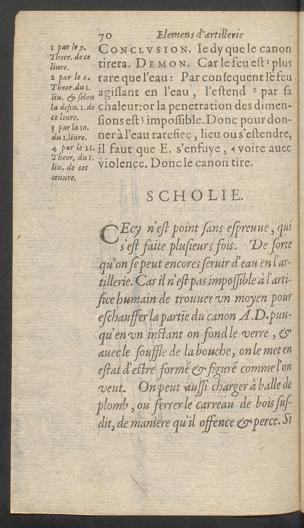 70 Elemens d'artillerie
CONCLVSION. Ie dy que le canon
tirera. DEMON. Car le feu est ¹ plus
rare que l'eau: Par consequent le feu
agissant en l'eau, l'estend ² par sa
chaleur: or la penetration des dimen-
sions est ³ impossible. Donc pour don-
ner à l'eau rarefiee, lieu ou s'estendre,
il faut que E. s'enfuye, ⁴ voire auec
violence. Donc le canon tire.
1 par le 9.
Theor. de ce
liure.
2 par le 1.
Theor. du 1.
liu. & selon
la defin. 1. de
ce liure.
3 par la 10.
du 1. liure.
4 par le 11.
Theor. du 1.
liu. de ces
œuure.
SCHOLIE.
CEcy n'est point sans espreuue, qui
s'est faite plusieurs fois. De sorte
qu'on se peut encores seruir d'eau en l'ar-
tillerie. Car il n'est pas impossible à l'arti-
fice humain de trouuer vn moyen pour
eschauffer la partie du canon A.D. puis-
qu'en vn instant on fond le verre, &
auec le souffle de la bouche, on le met en
estat d'estre formé & figuré comme l'on
veut. On peut aussi charger à balle de
plomb, ou ferrer le carreau de bois sus-
dit, de maniere qu'il offence & perce. Si